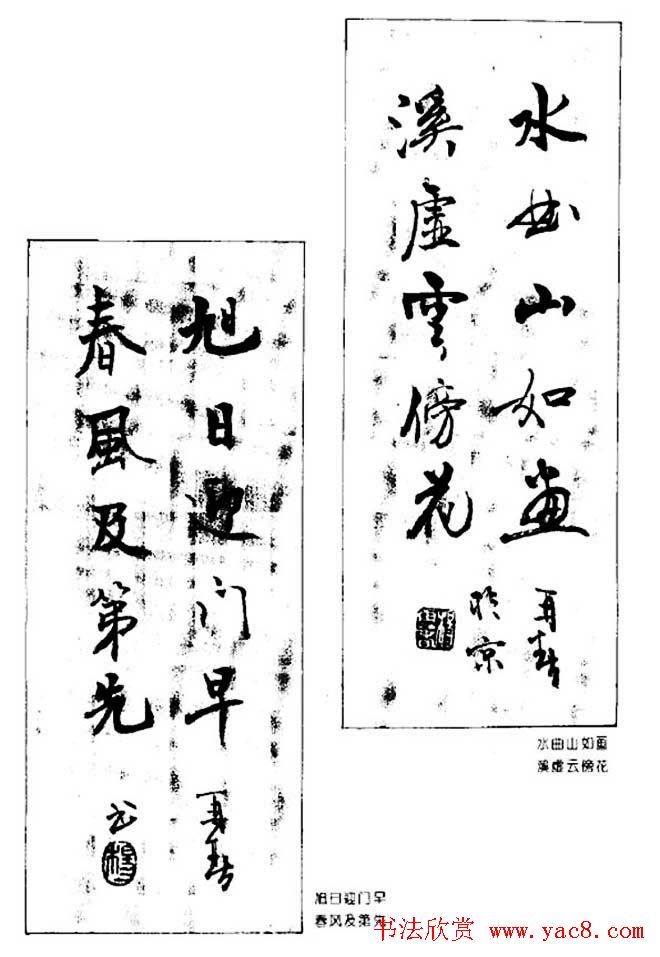 水曲山如画
溪虚雲傍花
于京
水曲山如画
溪虚云傍花
旭日迎门早
春風及第先
书
旭日迎门早
春风及第先
书法欣赏 www.yac8.com